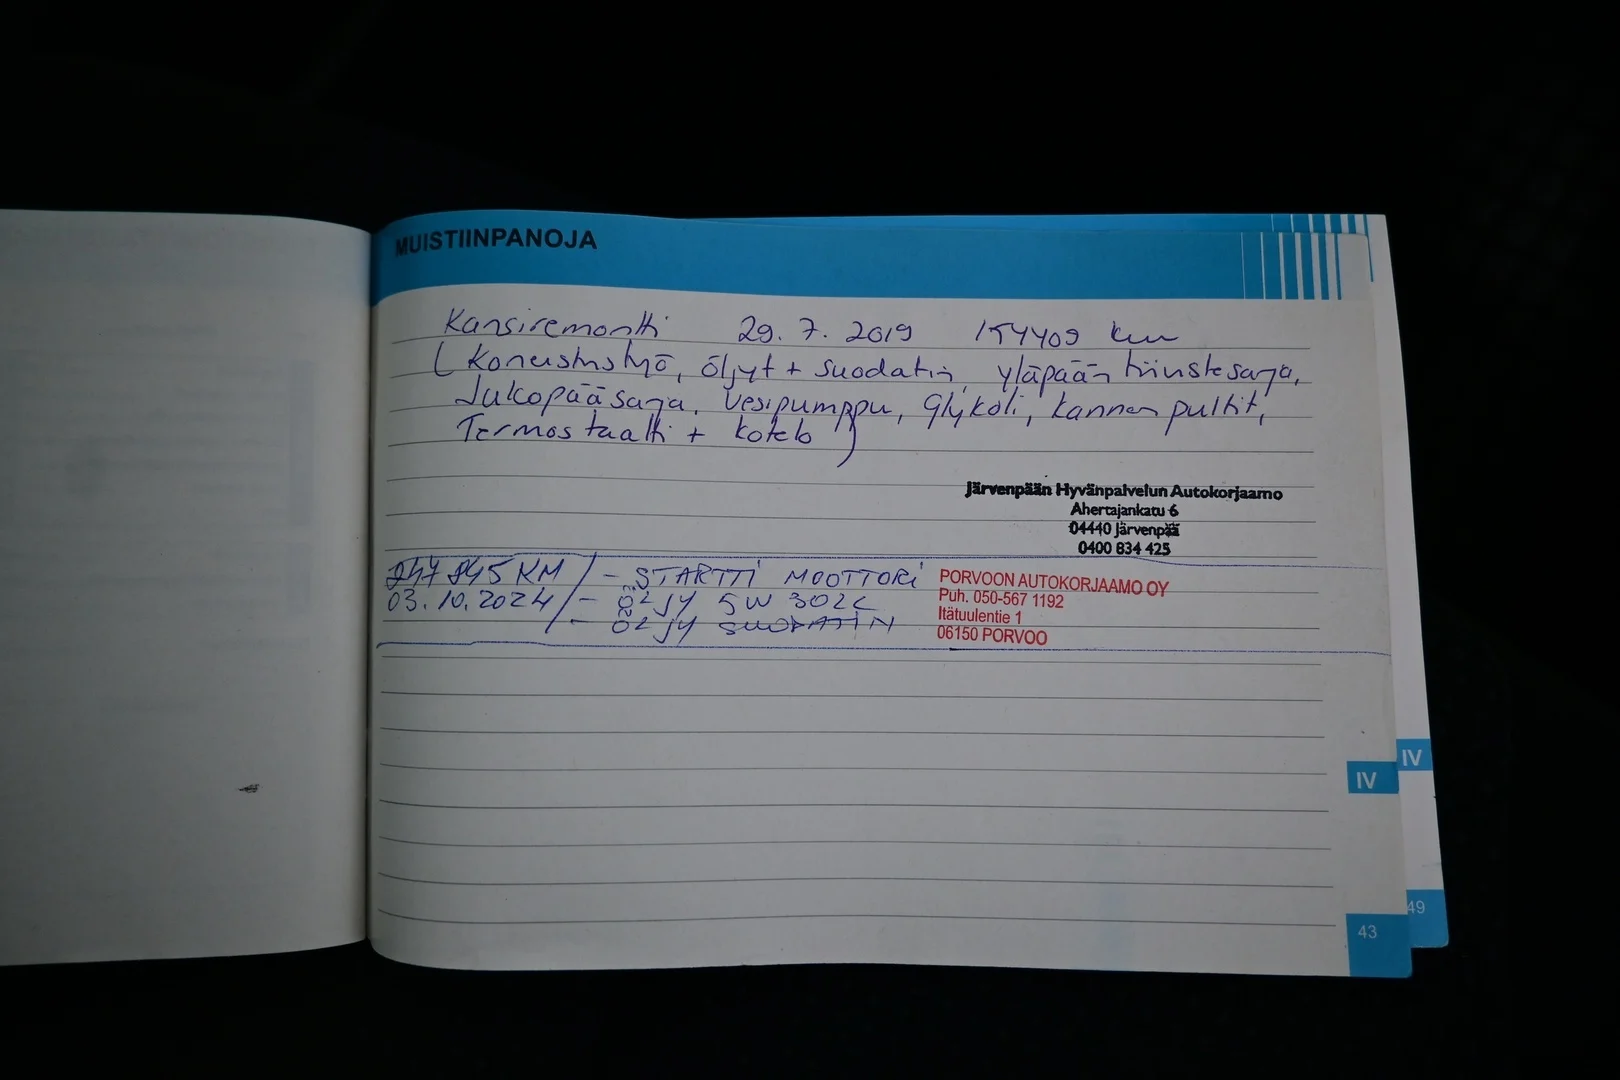 MUISTIINPANOJA
Kansiremontti 29.7.2019 154409 km
( Koneistustyö, öljyt + suodatin, yläpään tiivistesarja,
Jakopääsarja, Vesipumppu, Glykoli, kannen pultit,
Termostaatti + kotelo )
Järvenpään Hyvänpalvelun Autokorjaamo
Ahertajankatu 6
04440 Järvenpää
0400 834 425
247 845 KM / - STARTTI MOOTTORI
03.10.2024 / - ÖLJY 5W30 2L
/ - ÖLJY SUODATIN
PORVOON AUTOKORJAAMO OY
Puh. 050-567 1192
Itätuulentie 1
06150 PORVOO
IV
IV
49
43